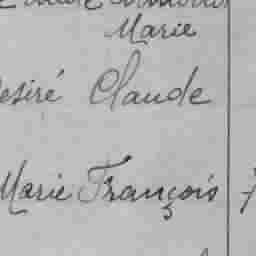 Marie
esiré Claude
Marie François